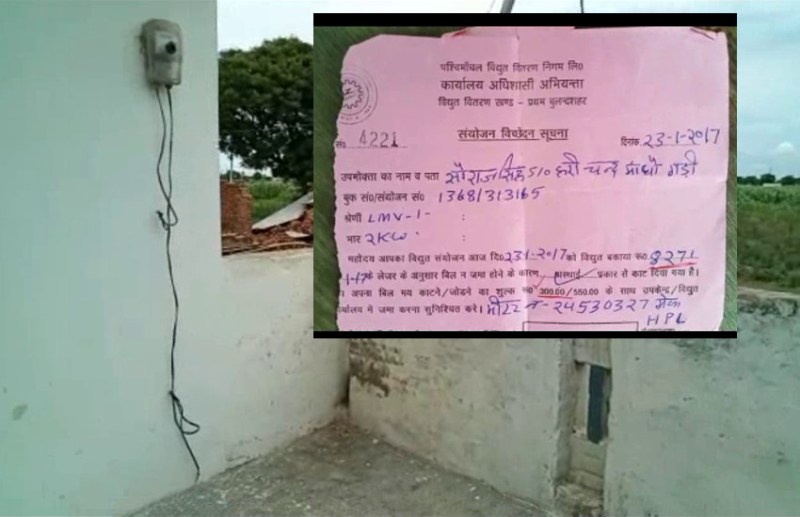 पश्चिमांचल विद्युत वितरण निगम लि०
कार्यालय अधिशासी अभियन्ता
विद्युत वितरण खण्ड – प्रथम बुलन्दशहर
सं० 4221 संयोजन विच्छेदन सूचना दिनांक 23-1-2017
उपभोक्ता का नाम व पता सौराज सिंह S/o हरी चन्द माधो गढ़ी
बुक सं०/संयोजन सं० 1368/313165
श्रेणी LMV-1- :
भार 2KW :
महोदय आपका विद्युत संयोजन आज दि० 23-1-2017 को विद्युत बकाया रू० 8271
1-17 के लेजर के अनुसार बिल न जमा होने के कारण अस्थाई प्रकार से काट दिया गया है।
अपना बिल मय काटने/जोडने का शुल्क रू० 300.00/550.00 के साथ उपकेन्द्र/विद्युत
कार्यालय मे जमा करना सुनिश्चित करे। मीटर न-24530327 मेक
HPL